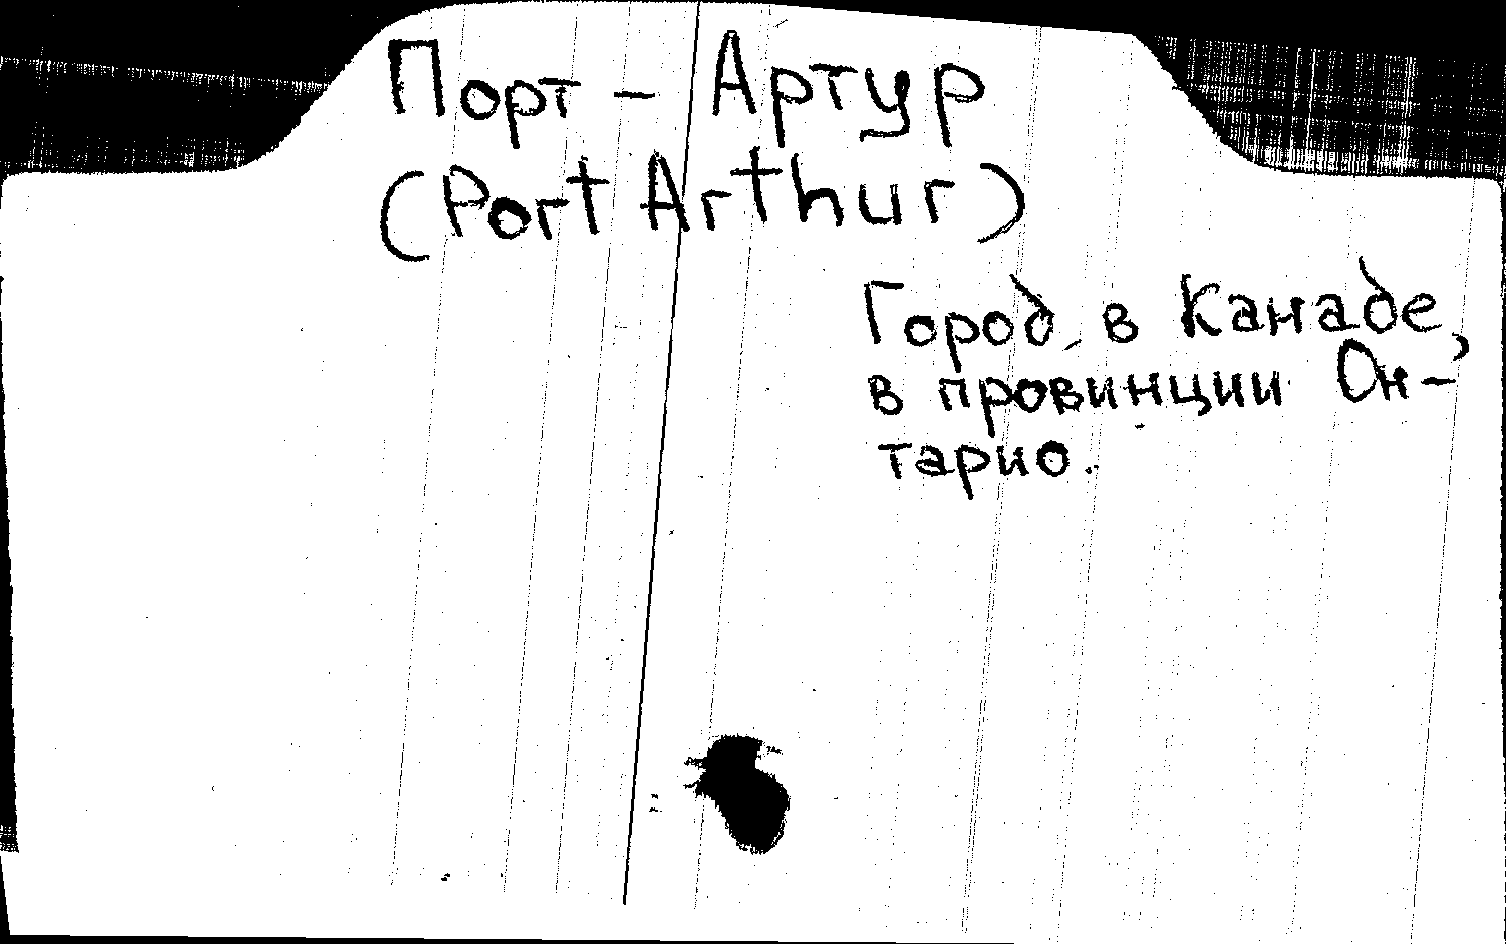 Порт - Артур
(Port Arthur)
Город в Канаде,
в провинции Он-
тарио.